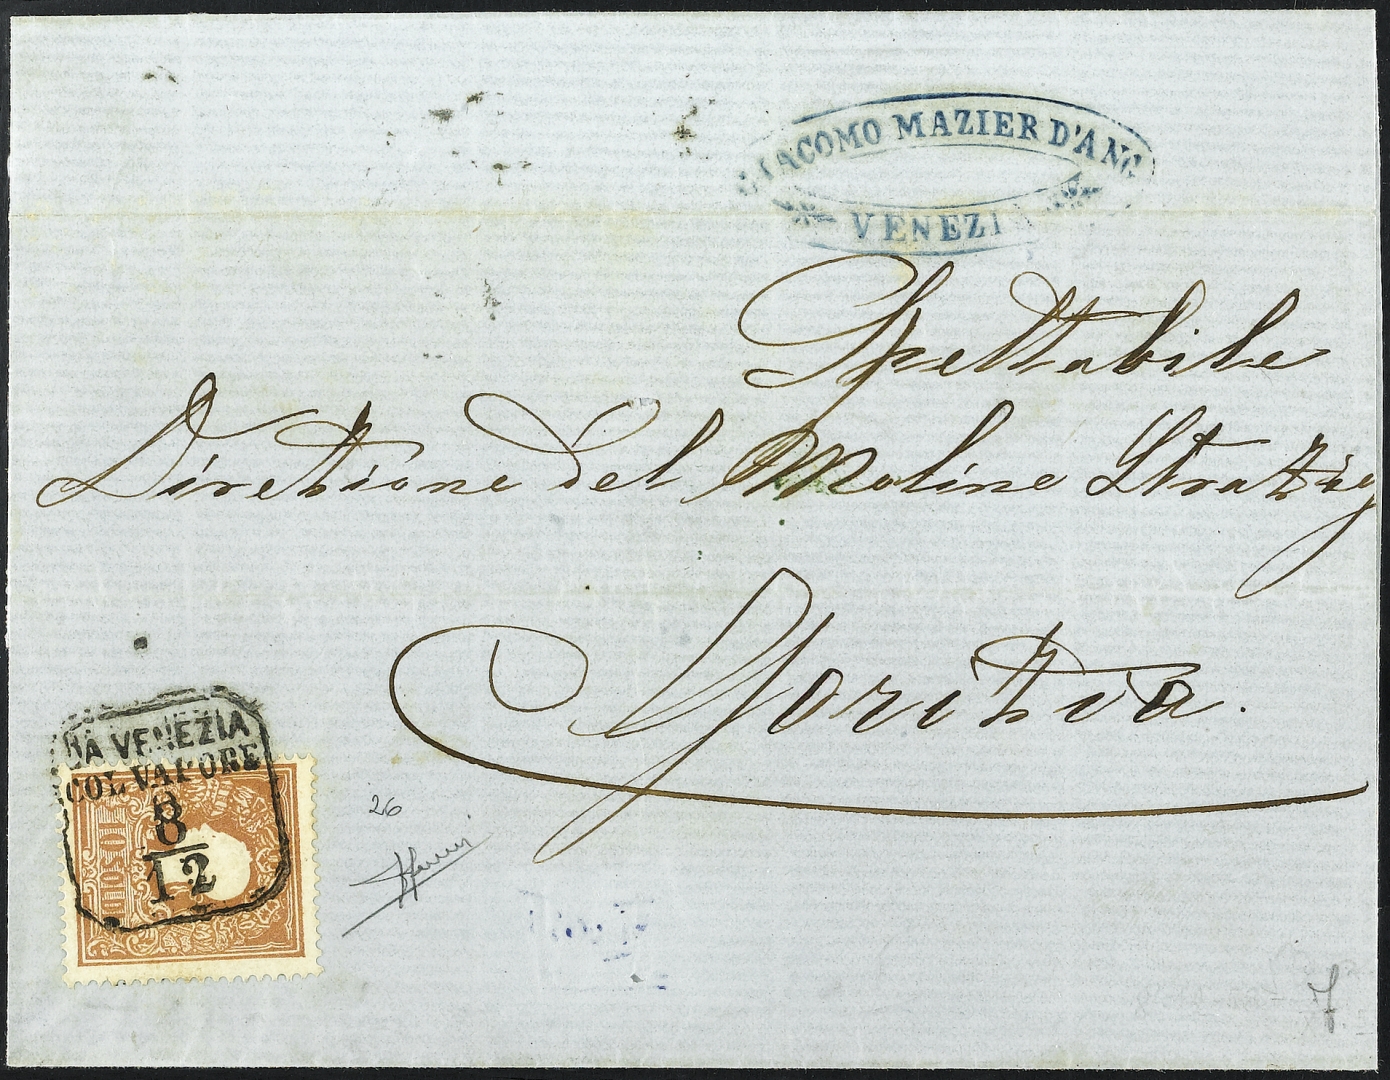 GIACOMO MAZIER D'ANG
VENEZIA
Spettabile
Direttione del Moline Stratzig
Goritzia.
DA VENEZIA
COL VAPORE
8
12
10 SOLDI
26